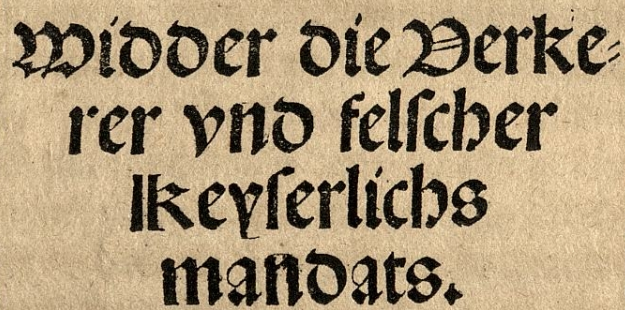 Widder die Verke⸗
rer vnd felſcher
Keyſerlichs
mandats.